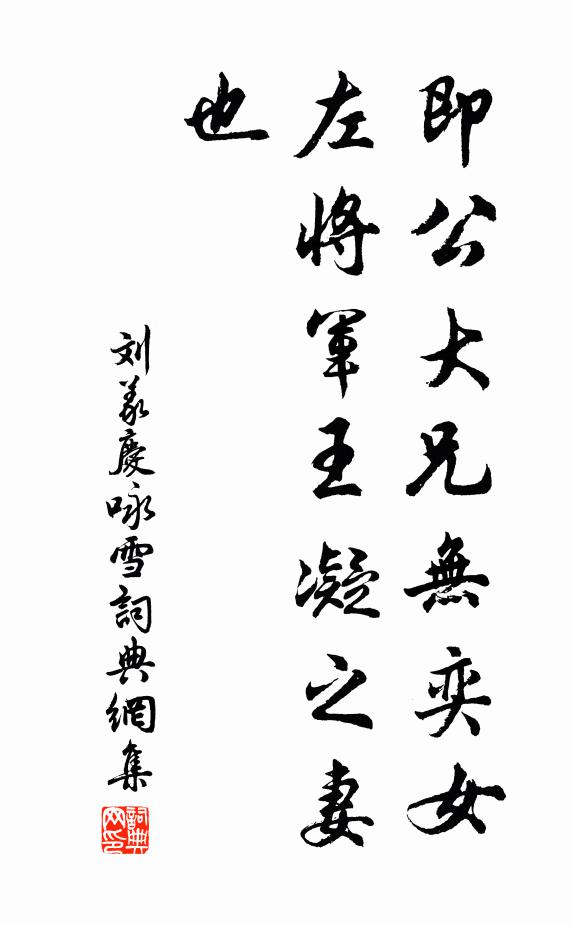 即公大兄無奕女
左將軍王凝之妻
也
刘義慶咏雪詞典網集
詞典网印